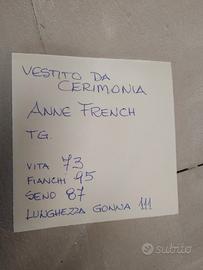 VESTITO DA
CERIMONIA
ANNE FRENCH
TG.
VITA 73
FIANCHI 95
SENO 87
LUNGHEZZA GONNA 111
subito